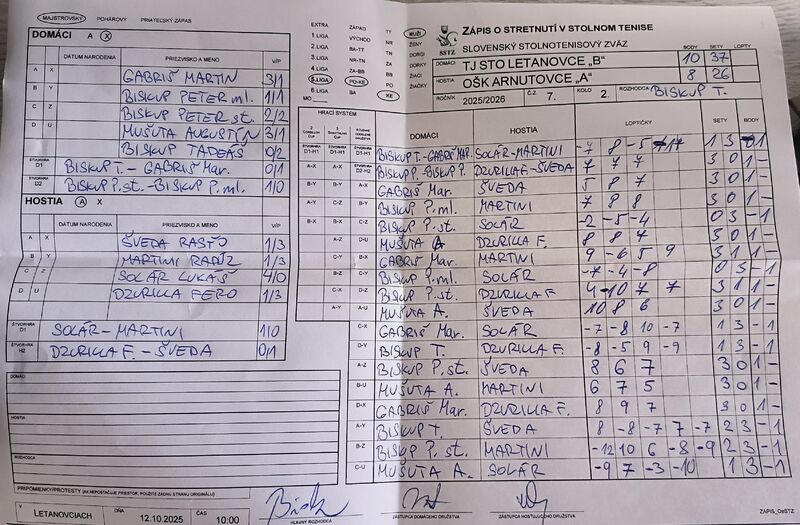 MAJSTROVSKÝ POHÁROVÝ PRIATEĽSKÝ ZÁPAS
DOMÁCI A X
DÁTUM NARODENIA PRIEZVISKO A MENO V/P
A X GABRIŠ MARTIN 3/1
B Y BISKUP PETER ml. 1/1
C Z BISKUP PETER st. 2/2
D U MUŠUTA AUGUSTÍN 3/1
BISKUP TADEÁŠ 0/2
ŠTVORHRA D1 BISKUP T. - GABRIŠ Mar. 0/1
ŠTVORHRA D2 BISKUP P. st. - BISKUP P. ml. 1/0
HOSTIA A X
DÁTUM NARODENIA PRIEZVISKO A MENO V/P
A X ŠVEDA RASŤO 1/3
B Y MARTINI RADÚZ 1/3
C Z SOLÁR LUKÁŠ 4/0
D U DZURILLA FERO 1/3
ŠTVORHRA D1 SOLÁR - MARTINI 1/0
ŠTVORHRA H2 DZURILLA F. - ŠVEDA 0/1
DOMÁCI
HOSTIA
ROZHODCA
PRIPOMIENKY/PROTESTY (AK NEPOSTAČUJE PRIESTOR, POUŽITE ZADNÚ STRANU ORIGINÁLU)
V LETANOVCIACH DŇA 12.10.2025 ČAS 10:00
HLAVNÝ ROZHODCA
ZÁSTUPCA DOMÁCEHO DRUŽSTVA
ZÁSTUPCA HOSŤUJÚCEHO DRUŽSTVA
ZAPIS_OsSTZ
EXTRA ZÁPAD TT MUŽI
1.LIGA VÝCHOD NR ŽENY
2.LIGA BA-TT TN DORCI
3.LIGA NR-TN DORKY
4.LIGA ZA-BB ŽIACI
5.LIGA PO-KE ŽIAČKY
6.LIGA BA KE
MO
SSTZ
ZÁPIS O STRETNUTÍ V STOLNOM TENISE
SLOVENSKÝ STOLNOTENISOVÝ ZVÄZ
BODY SETY LOPTY
DOMÁCI TJ STO LETANOVCE „B" 10 37
HOSTIA OŠK ARNUTOVCE „A" 8 26
ROČNÍK 2025/2026 Č.Z. 7. KOLO 2. ROZHODCA BISKUP T.
HRACÍ SYSTÉM
DOMÁCI HOSTIA LOPTIČKY SETY BODY
BISKUP T.-GABRIŠ MAR. SOLÁR-MARTINI -7 8 -5 1 3 - 1
BISKUP P.-BISKUP P. DZURILLA F.-ŠVEDA 7 7 7 3 0 1 -
GABRIŠ Mar. ŠVEDA 5 8 7 3 0 1 -
BISKUP P. ml. MARTINI 7 8 8 3 0 1 -
BISKUP P. st. SOLÁR -2 -5 -4 0 3 - 1
MUŠUTA A DZURILLA F. 8 8 7 3 0 1 -
GABRIŠ Mar. MARTINI 9 -6 5 9 3 1 1 -
BISKUP P. ml. SOLÁR -7 -4 -8 0 3 - 1
BISKUP P. st. DZURILLA F 4 -10 7 7 3 1 1 -
MUŠUTA A. ŠVEDA 10 8 6 3 0 1 -
C-X GABRIŠ Mar. SOLÁR -7 -8 10 -7 1 3 - 1
D-Y BISKUP T. DZURILLA F. -8 -5 9 -9 1 3 - 1
A-Z BISKUP P. st. ŠVEDA 8 6 7 3 0 1 -
B-U MUŠUTA A. MARTINI 6 7 5 3 0 1 -
D-X GABRIŠ Mar. DZURILLA F. 8 9 7 3 0 1 -
A-Y BISKUP T. ŠVEDA 8 -8 -7 7 -7 2 3 - 1
B-Z BISKUP P. st. MARTINI -12 10 6 -8 -9 2 3 - 1
C-U MUŠUTA A. SOLÁR -9 7 -3 -10 1 3 - 1